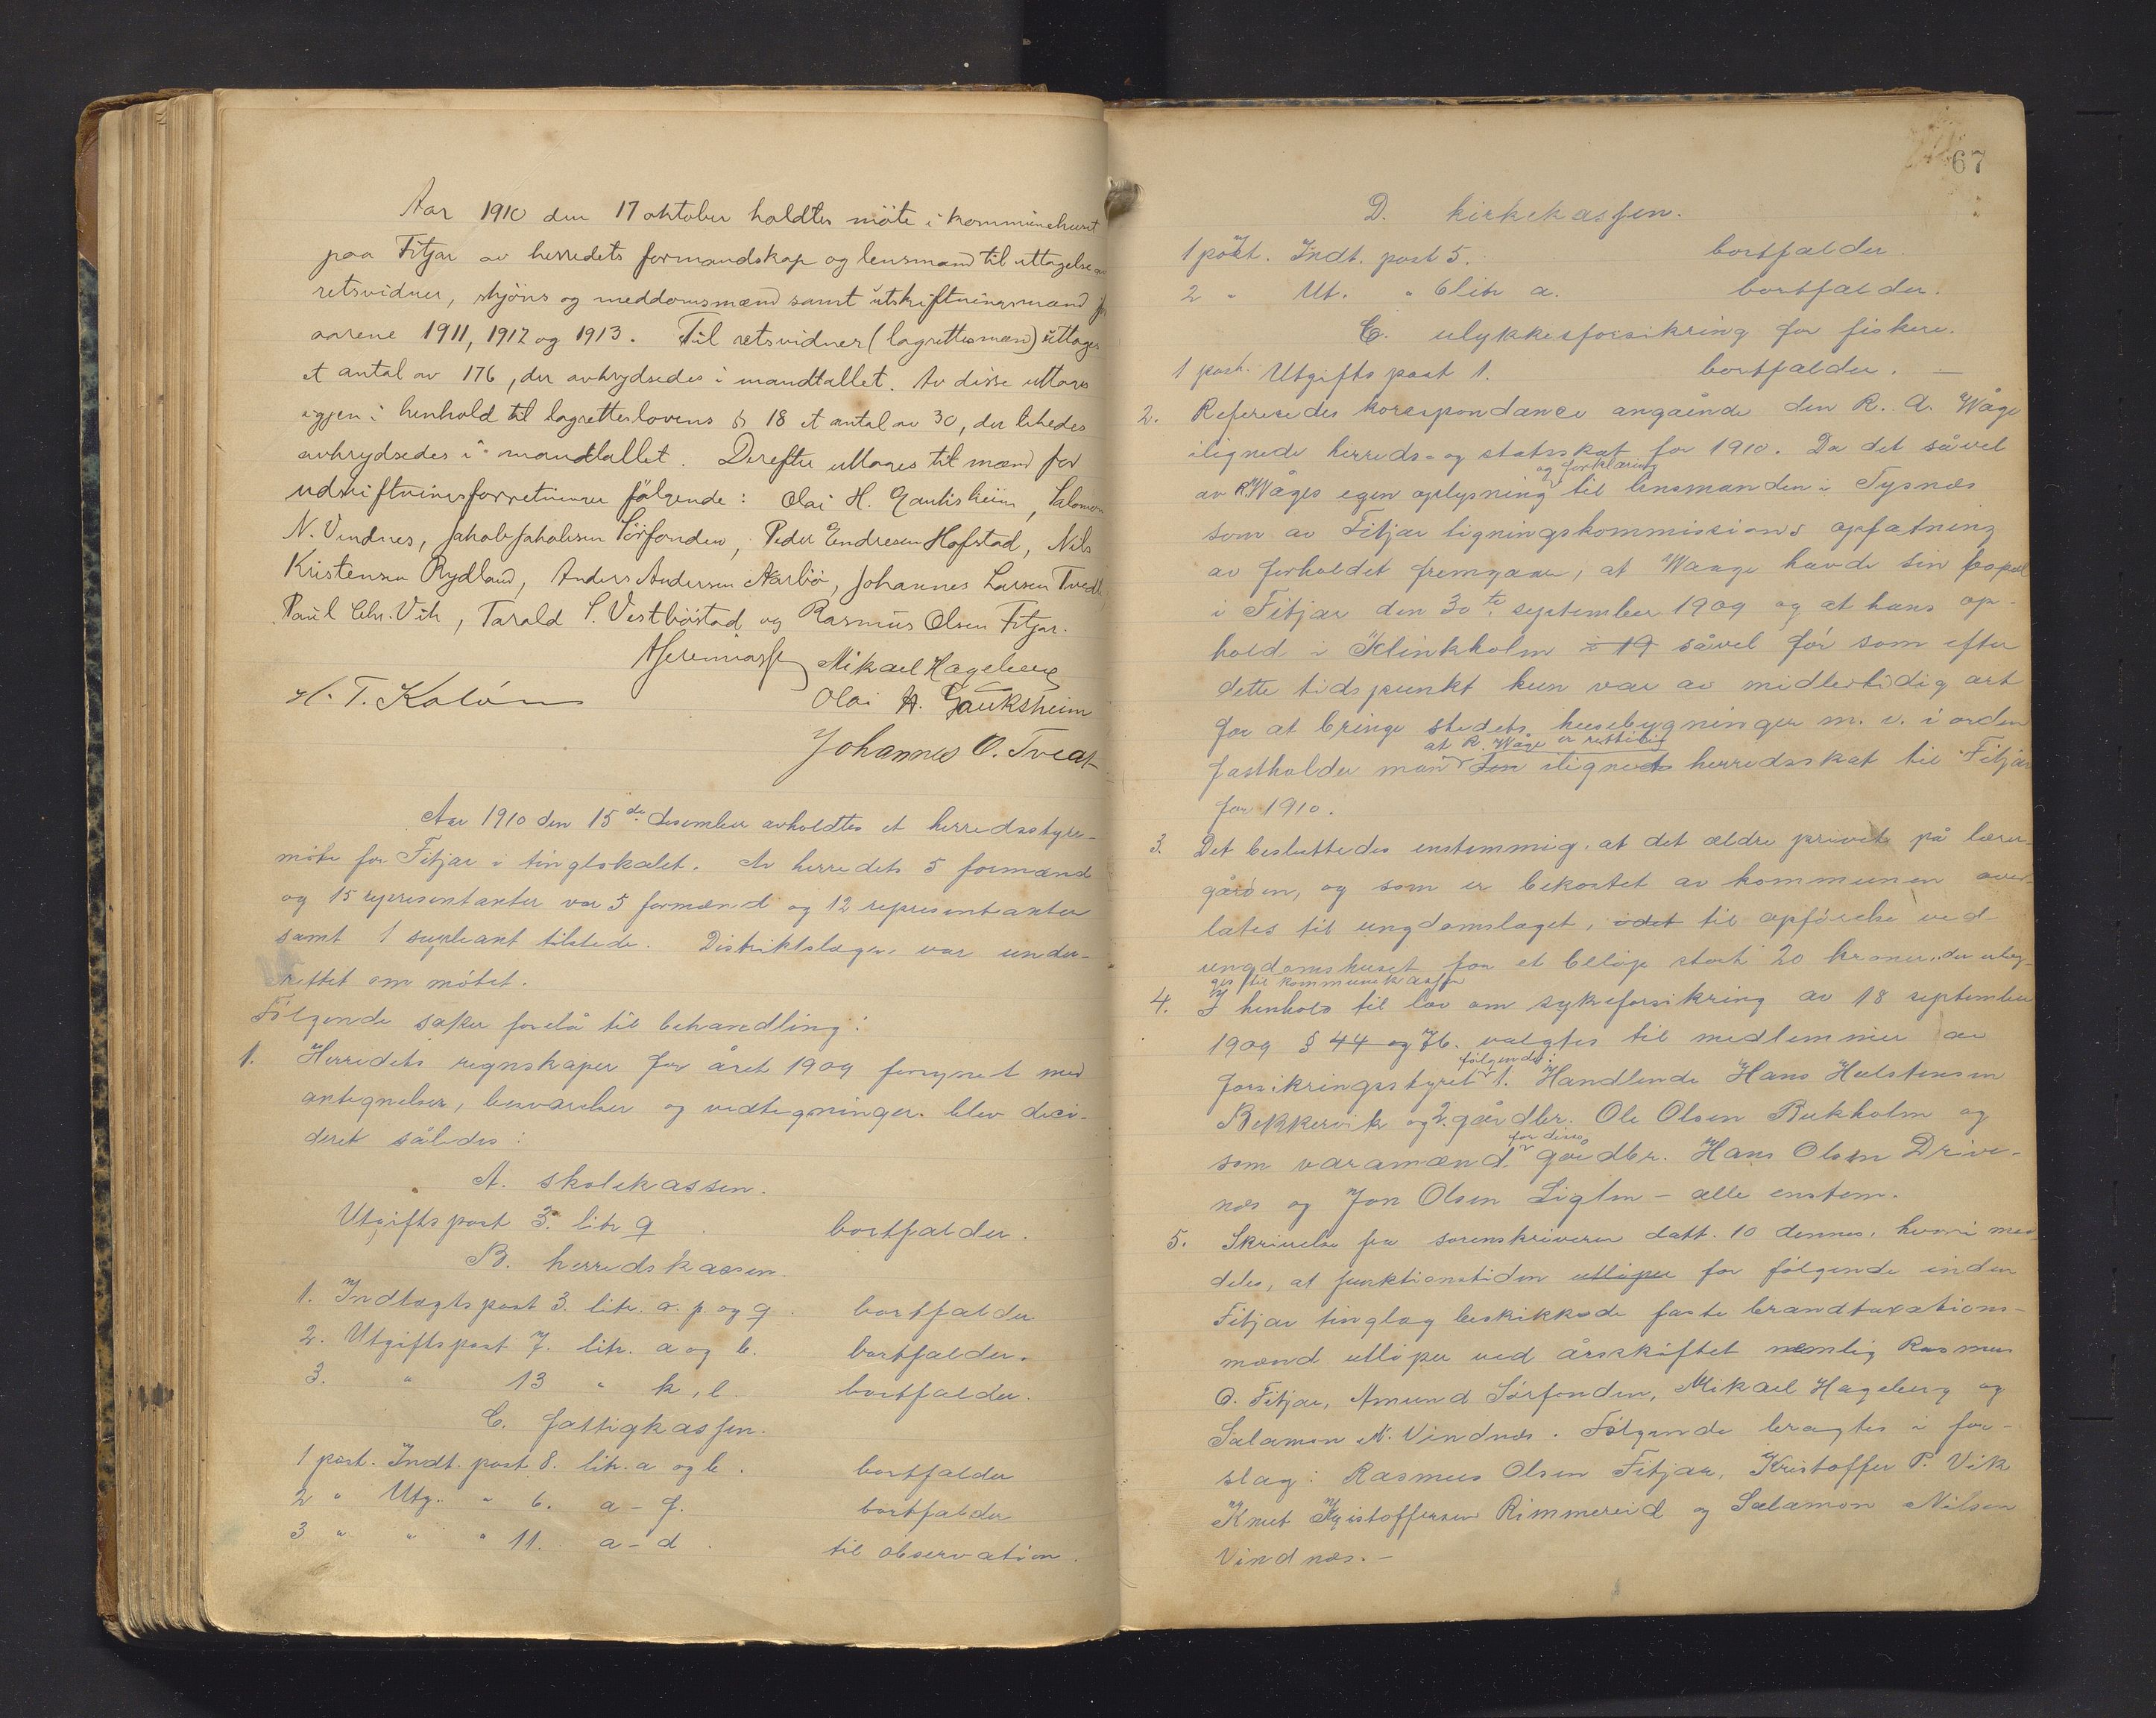 Aar 1910 den 17 oktober holdtes möte i kommunehuset
paa Fitjar av herredets formandskap og lensmand til uttagelse av
retsvidner, skjöns og meddomsmænd samt utskiftningsmænd for
aarene 1911, 1912 og 1913. Til retsvidner (lagrettesmænd) uttoges
et antal av 176, der avkrydsedes i mandtallet. Av disse uttoges
igjen i henhold til lagretteslovens § 18 et antal av 30, der likedes
avkrydsedes i mandtallet. Derefter uttoges til mænd for
udskiftningsforretninger fölgende: Olai H. Gauksheim, Salomon
N. Vindnes, Jakob Jakobsen Sörfonden, Peder Endresen Hofstad, Nils
Kristensen Rydland, Anders Andersen Aarbö, Johannes Larsen Tvedt,
Paul Chr. Vik, Tarald S. Vestböstad og Rasmus Olsen Fitjar.
Mikael Hageberg
H. T. Kolöen Olai H. Gauksheim
Johannes O. Tveit
Aar 1910 den 15de desember avholdtes et herredsstyre-
möte for Fitjar i tinglokalet. Av herredets 5 formænd
og 15 representanter var 5 formænd og 12 representanter
samt 1 supleant tilstede. Distriktslægen var under-
rettet om mötet.
Fölgende saker forelå til behandling:
1. Herredets regnskaper for året 1909 forsynet med
antegnelser, besvarelser og vedtegninger blev deci-
deret således:
A. skolekassen.
Utgiftspost 3. litr q. bortfalder.
B. herredskassen.
1. Indtægtspost 3. litr. a. p. og q. bortfalder.
2. Utgiftspost 7. litr. a og b. bortfalder.
3. " 13 " k, l. bortfalder.
C. fattigkassen.
1 post. Indt. post 8. litr. a og b. bortfalder
2 " Utg. " 6. a - f. bortfalder
3 " " " 11. a - d. til observation.
67
D. kirkekassen.
1 post. Indt. post 5. bortfalder.
2 " Ut. " 6 litr a. bortfalder.
E. ulykkesforsikring for fiskere.
1 post. Utgifts post 1. bortfalder. —
2. Refereredes korrespondance angående den R. A. Wåge
ilignede herreds- og statsskat for 1910. Da det såvel
og forklaring
av R. Wåges egen oplysning til lensmanden i Tysnæs
som av Fitjar ligningskommissions opfatning
av forholdet fremgaar, at Waage havde sin bopæl
i Fitjar den 30te september 1909 og at hans op-
hold i Klinkholm i 19 såvel för som efter
dette tidspunkt kun var av midlertidig art
for at bringe stedets husebygninger m. v. i orden
at R. Wåge er rettelig
fastholder man den ilignet herredsskat til Fitjar
for 1910.
3. Det besluttedes enstemmig, at det ældre privet på lærer-
gården, og som er bekostet av kommunen over-
lates til ungdomslaget, til opförelse ved
ungdomshuset for et belöp stort 20 kroner, der erlæg-
ges til kommunekassen
4. I henhold til lov om sykeforsikring av 18 september
1909 § 44 og 76. valgtes til medlemmer av
fölgende:
forsikringsstyret 1. Handlende Hans Hulstensen
Bekkervik og 2. gårdbr. Ole Olsen Bukholm og
for disse
som varamænd gårdbr. Hans Olsen Drive-
næs og Jon Olsen Ligtun — alle enstem.
5. Skrivelse fra sorenskriveren datt. 10 dennes, hvori med-
deles, at funktionstiden utlöper for fölgende inden
Fitjar tinglag beskikkede faste brandtaxations-
mænd utlöper ved årsskiftet nemlig Rasmus
O. Fitjar, Amund Sörfonden, Mikael Hageberg og
Salamon N. Vindnæs. Fölgende bragtes i for-
slag: Rasmus Olsen Fitjar, Kristoffer P. Vik
Knut Kristoffersen Rimmereid og Salamon Nilsen
Vindnæs. —